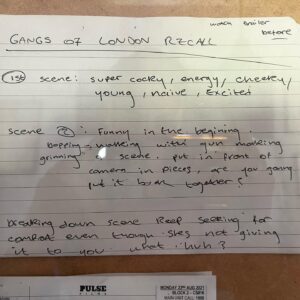 watch trailer
before
GANGS OF LONDON RECALL
1st scene: super cocky, energy, cheeky,
young, naive, Excited
scene 2: Funny in the begining.
bopping, walking with gun making
grinning a scene. put in front of
camera in pieces, are you going
put it back together?
breaking down scene Keep seaking for
comfort even though shes not giving
it to you what i huh?
PULSE
FILMS
MONDAY 23RD AUG 2021
MAIN UNIT CALL: